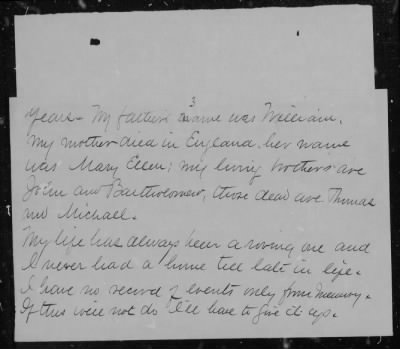 3
years. My father's name was William.
My mother died in England. her name
was Mary Ellen; my living brothers are
John and Bartholomew, those dead are Thomas
and Michael.
My life has always been a roving one and
I never had a home till late in life.
I have no record of events only from memory.
If this will not do I'll have to give it up.